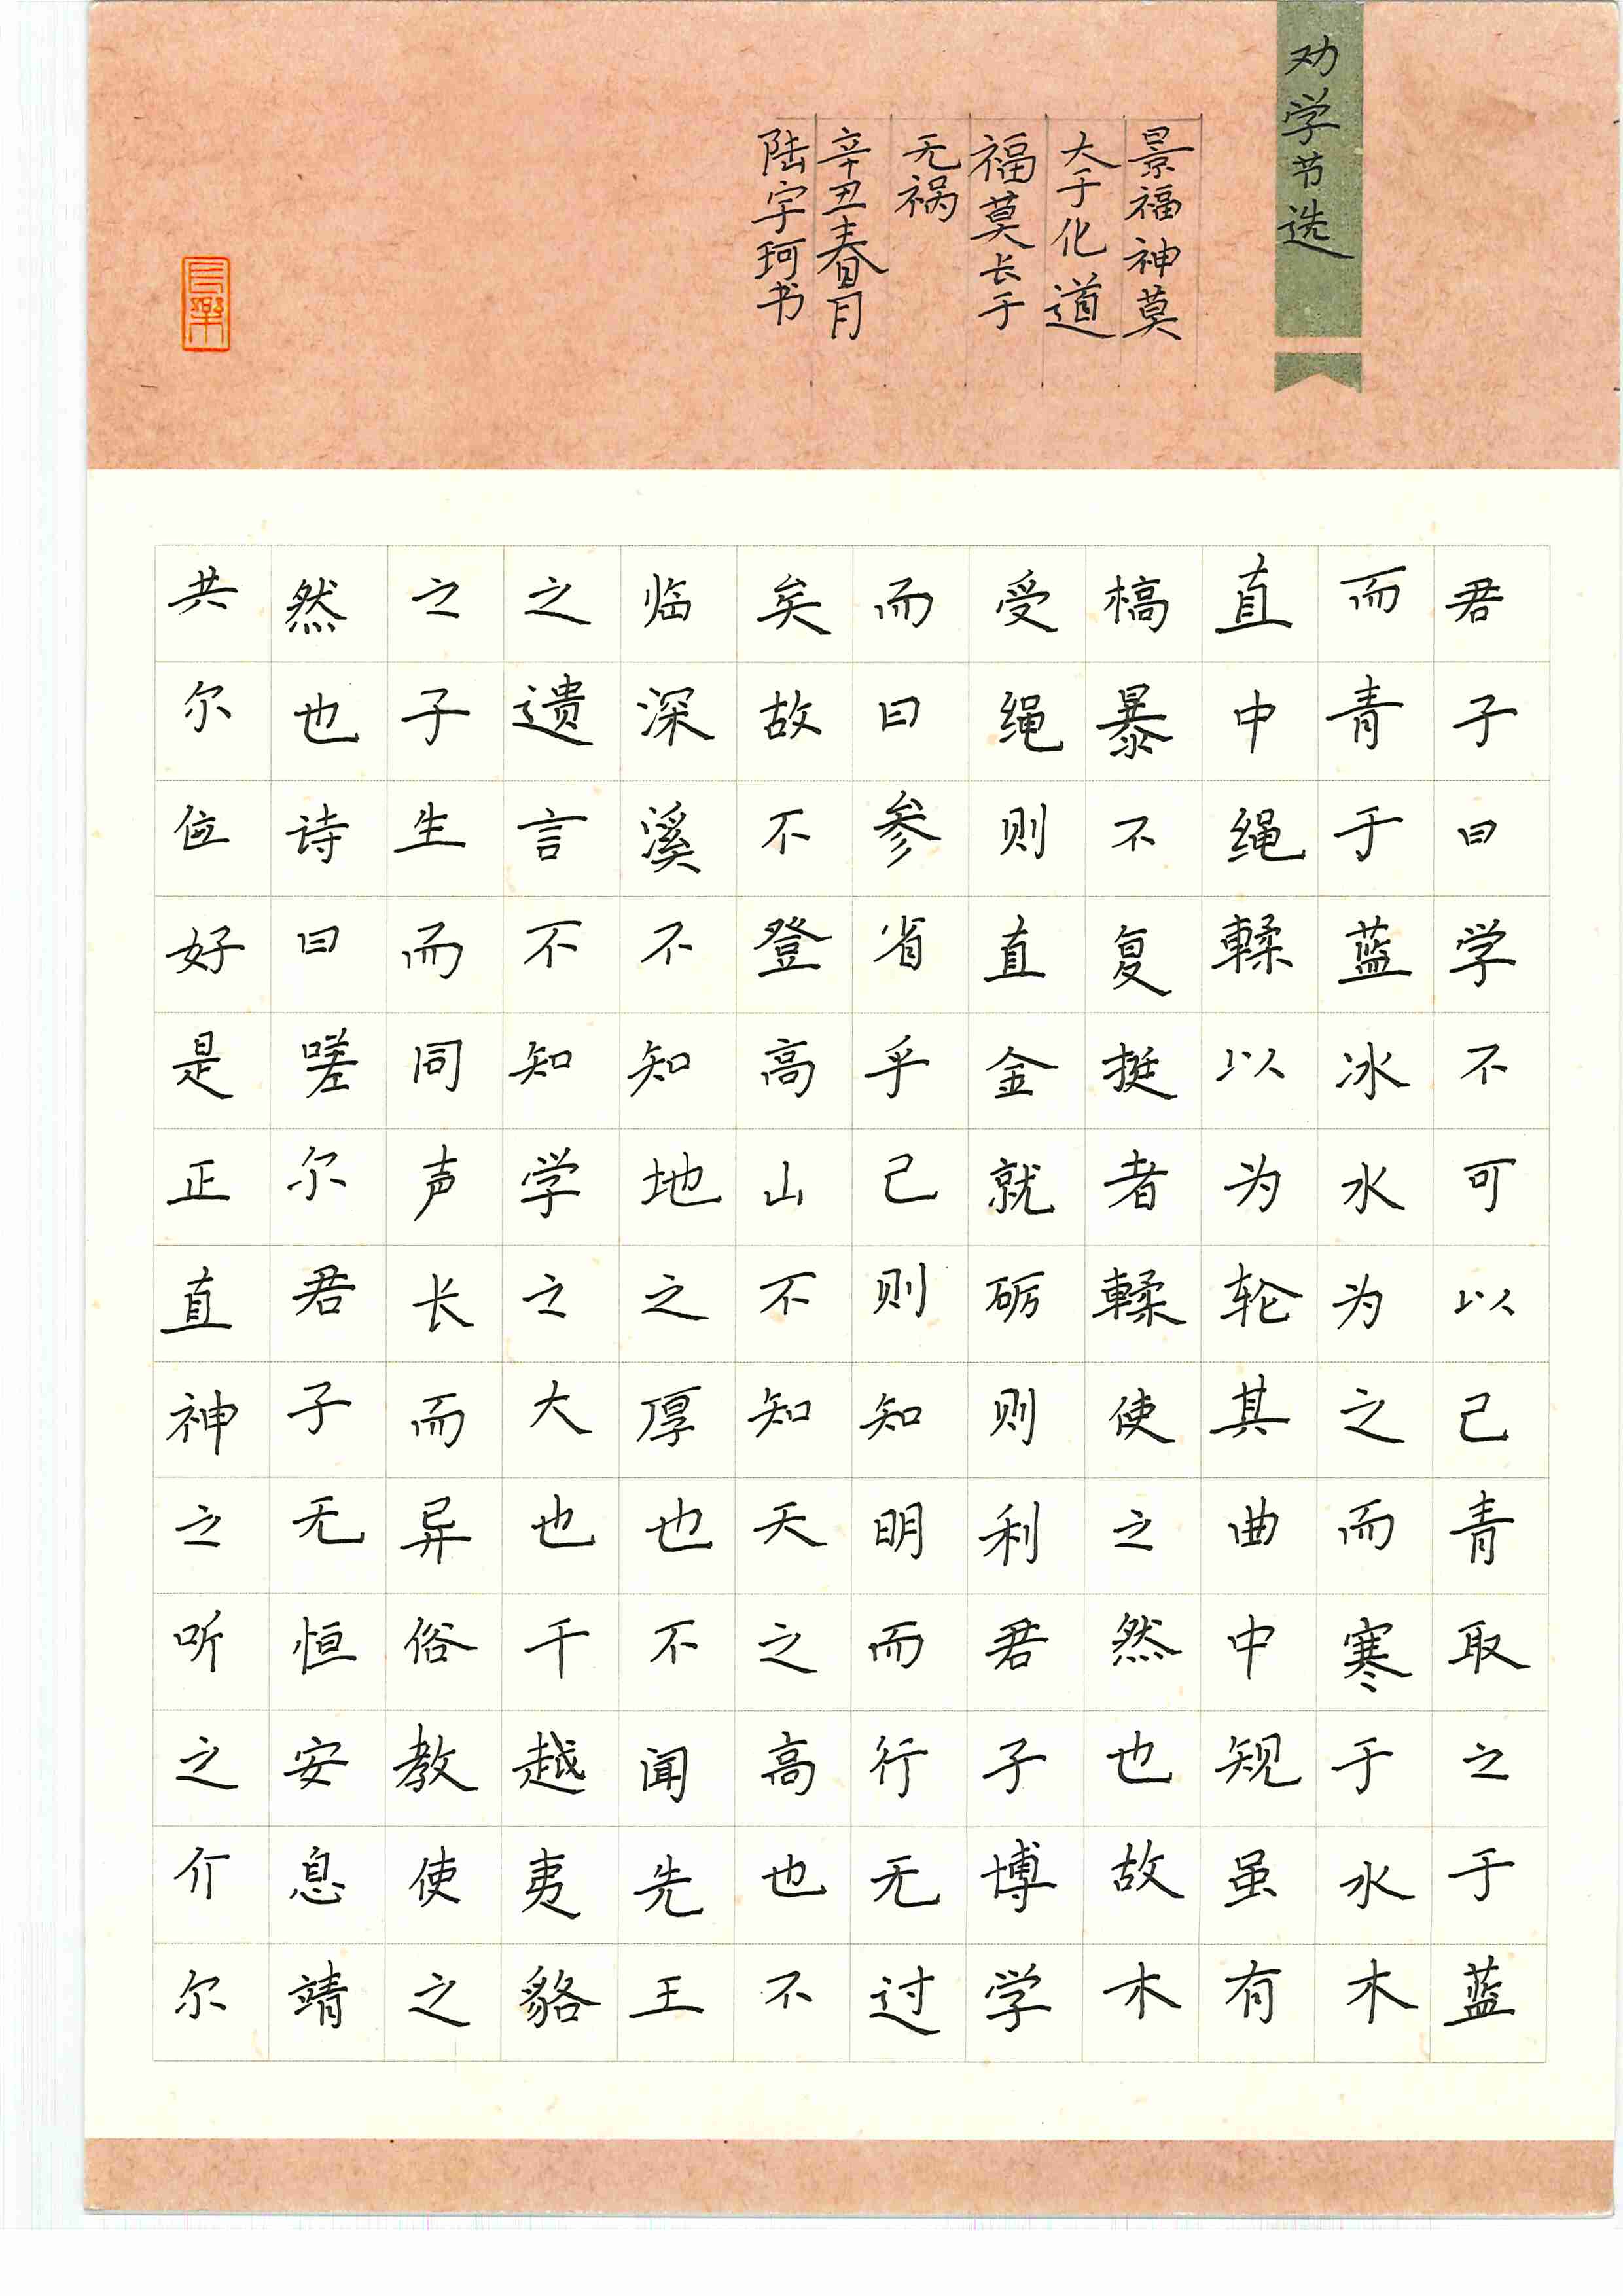 劝学节选
君子曰学不可以己青取之于蓝
而青于蓝冰水为之而寒于水木
直中绳輮以为轮其曲中规虽有
槁暴不复挺者輮使之然也故木
受绳则直金就砺则利君子博学
而日参省乎己则知明而行无过
矣故不登高山不知天之高也不
临深溪不知地之厚也不闻先王
之遗言不知学之大也干越夷貉
之子生而同声长而异俗教使之
然也诗曰嗟尔君子无恒安息靖
共尔位好是正直神之听之介尔
景福神莫
大于化道
福莫长于
无祸
辛丑春月
陆宇珂书